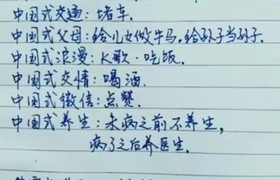 中国式交通：堵车.
中国式父母：给儿女做牛马.给孙子当孙子.
中国式浪漫：K歌·吃饭.
中国式交情：喝酒.
中国式微信：点赞.
中国式养生：未病之前不养生，
病了之后养医生.